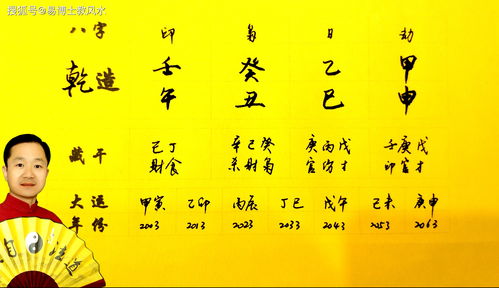 搜狐号@易博士教风水
八字 印 枭 日 劫
乾造 壬 癸 乙 甲
午 丑 巳 申
藏干 己丁 辛己癸 庚丙戊 壬庚戊
财食 杀财枭 官伤才 印官才
大运 甲寅 乙卯 丙辰 丁巳 戊午 己未 庚申
年份 2003 2013 2023 2033 2043 2053 2063